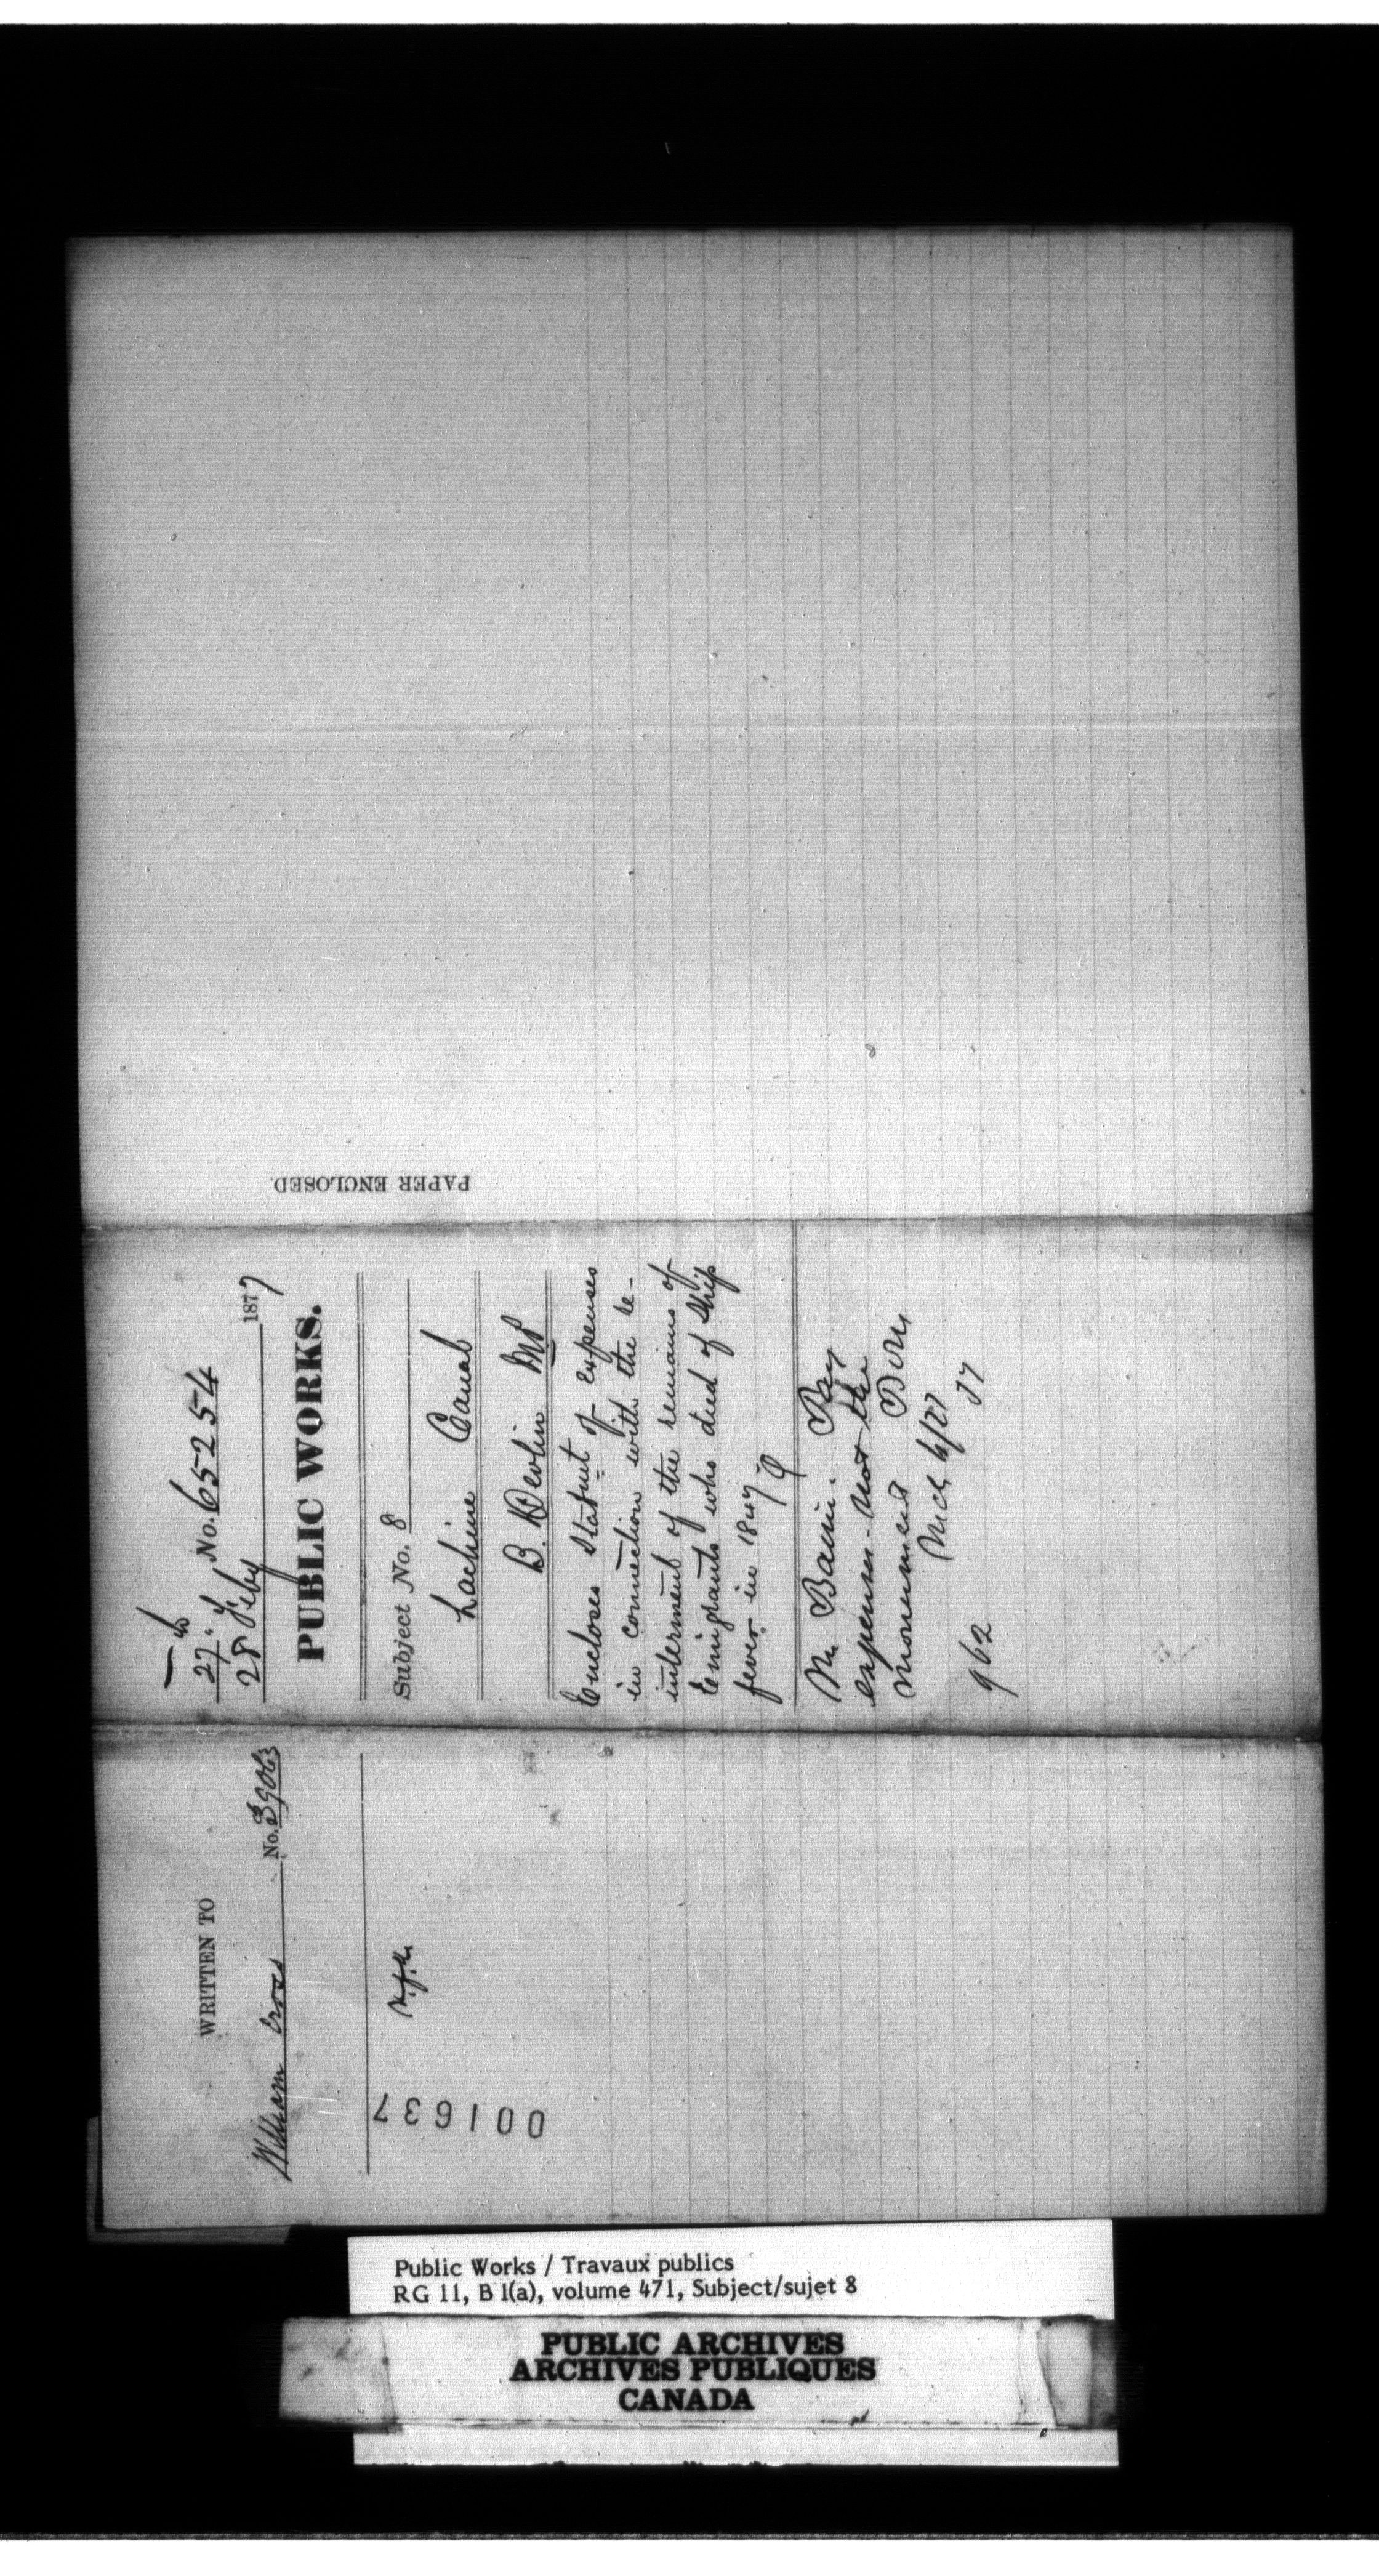 PAPER ENCLOSED.
27 f No. 65254
28 Feby 1877
PUBLIC WORKS.
Subject No. 8
Lachine Canal
B. Devlin MP
Encloses Statmt of Expenses
in connection with the re-
interment of the remains of
Emigrants who died of Ship
fever in 1847
Mr Pay
expenses - not the
monument
Mch
962
WRITTEN TO
William Cross No. 39063
001637
Public Works / Travaux publics
RG 11, B 1(a), volume 471, Subject/sujet 8
PUBLIC ARCHIVES
ARCHIVES PUBLIQUES
CANADA